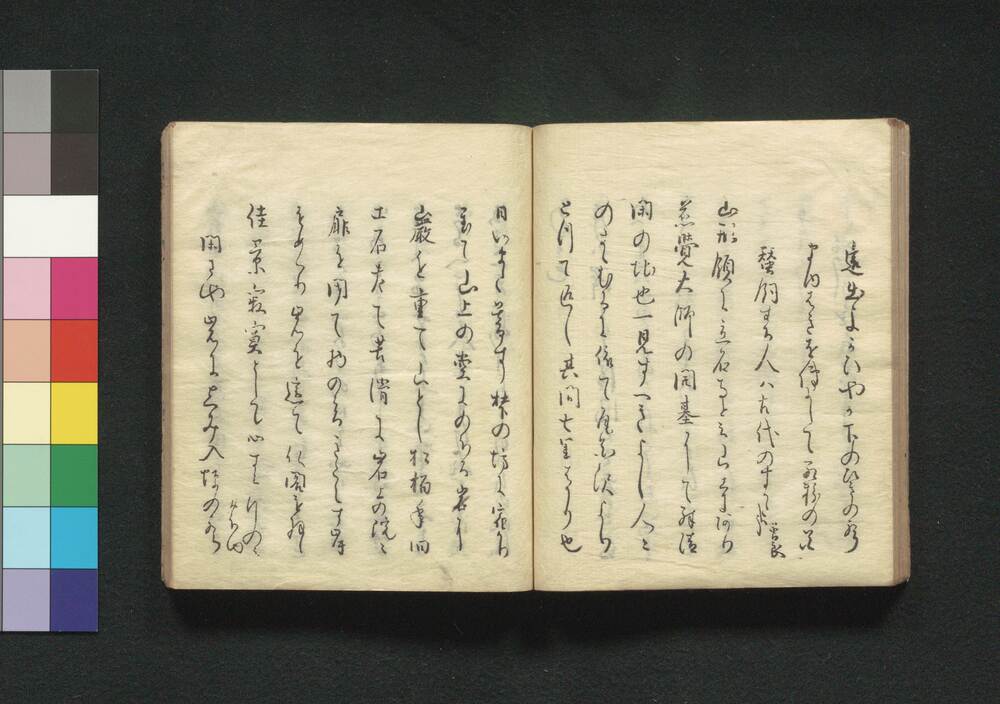 這出よかひやか下のひきの声
まゆはきを俤にして紅粉の花
蚕飼する人ハ古代のすかた哉 曽良
山形領に立石寺と云山寺あり
慈覚大師の開基にして殊清
閑の地也一見すへきよし人々
のすゝむるに依て尾花沢より
とつて返し其間七里はかり也
日いまた暮す梺の坊に宿かり
置て山上の堂にのほる岩に
巌を重て山とし松栢年旧
土石老て苔滑に岩上の院々
扉を閉て物の音きこえす岸
をめくり岩を這て仏閣を拝し
佳景寂寞として心すみ行のみ
おほゆ
閑さや岩にしみ入蝉の声